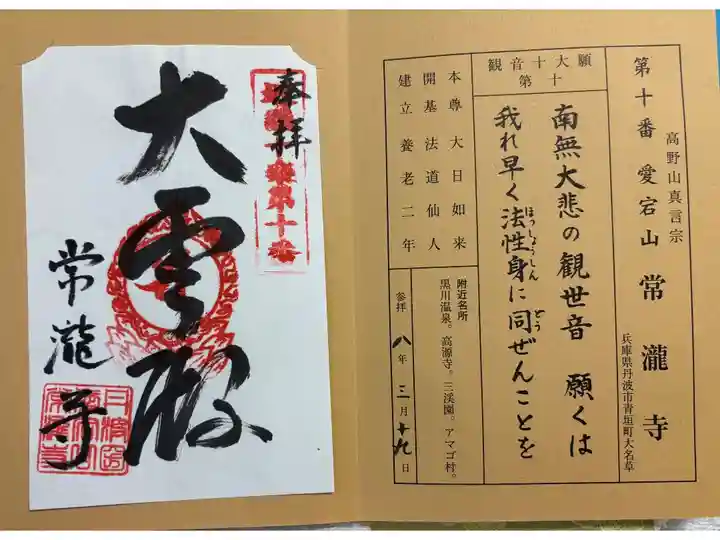 奉拝
第十番
大雲殿
常瀧寺
第十番 愛宕山 常瀧寺
高野山真言宗
兵庫県丹波市青垣町大名草
観音十大願
第十
南無大悲の観世音 願くは
我れ早く法性身に同ぜんことを
ほっしょうしん
どう
本尊 大日如来
開基 法道仙人
建立 養老二年
附近名所
黒川温泉。高源寺。三渓園。アマゴ村。
参拝 八年 三月 十九日